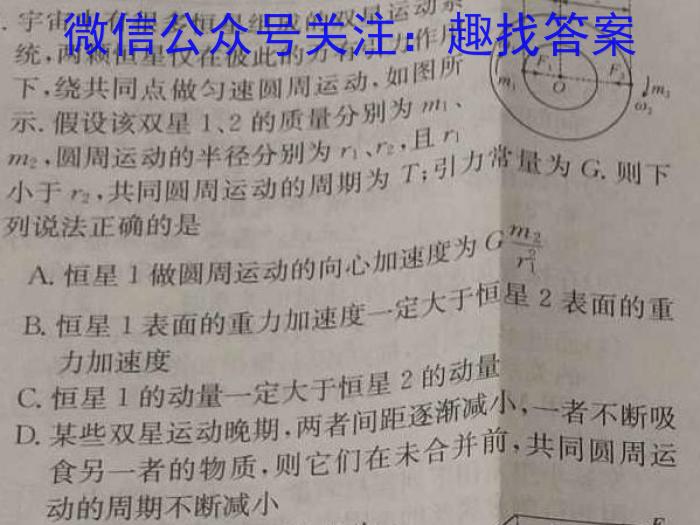 微信公众号关注：趣找答案
统，两颗恒星仅在彼此的万有引力作用
下，绕共同点做匀速圆周运动，如图所
示. 假设该双星 1、2 的质量分别为 m₁、
m₂，圆周运动的半径分别为 r₁、r₂，且 r₁
小于 r₂，共同圆周运动的周期为 T；引力常量为 G. 则下
列说法正确的是
A. 恒星 1 做圆周运动的向心加速度为 G m₂/r₁²
B. 恒星 1 表面的重力加速度一定大于恒星 2 表面的重
力加速度
C. 恒星 1 的动量一定大于恒星 2 的动量
D. 某些双星运动晚期，两者间距逐渐减小，一者不断吸
食另一者的物质，则它们在未合并前，共同圆周运
动的周期不断减小
m₁ F₁ O F₂ m₂
ω₂